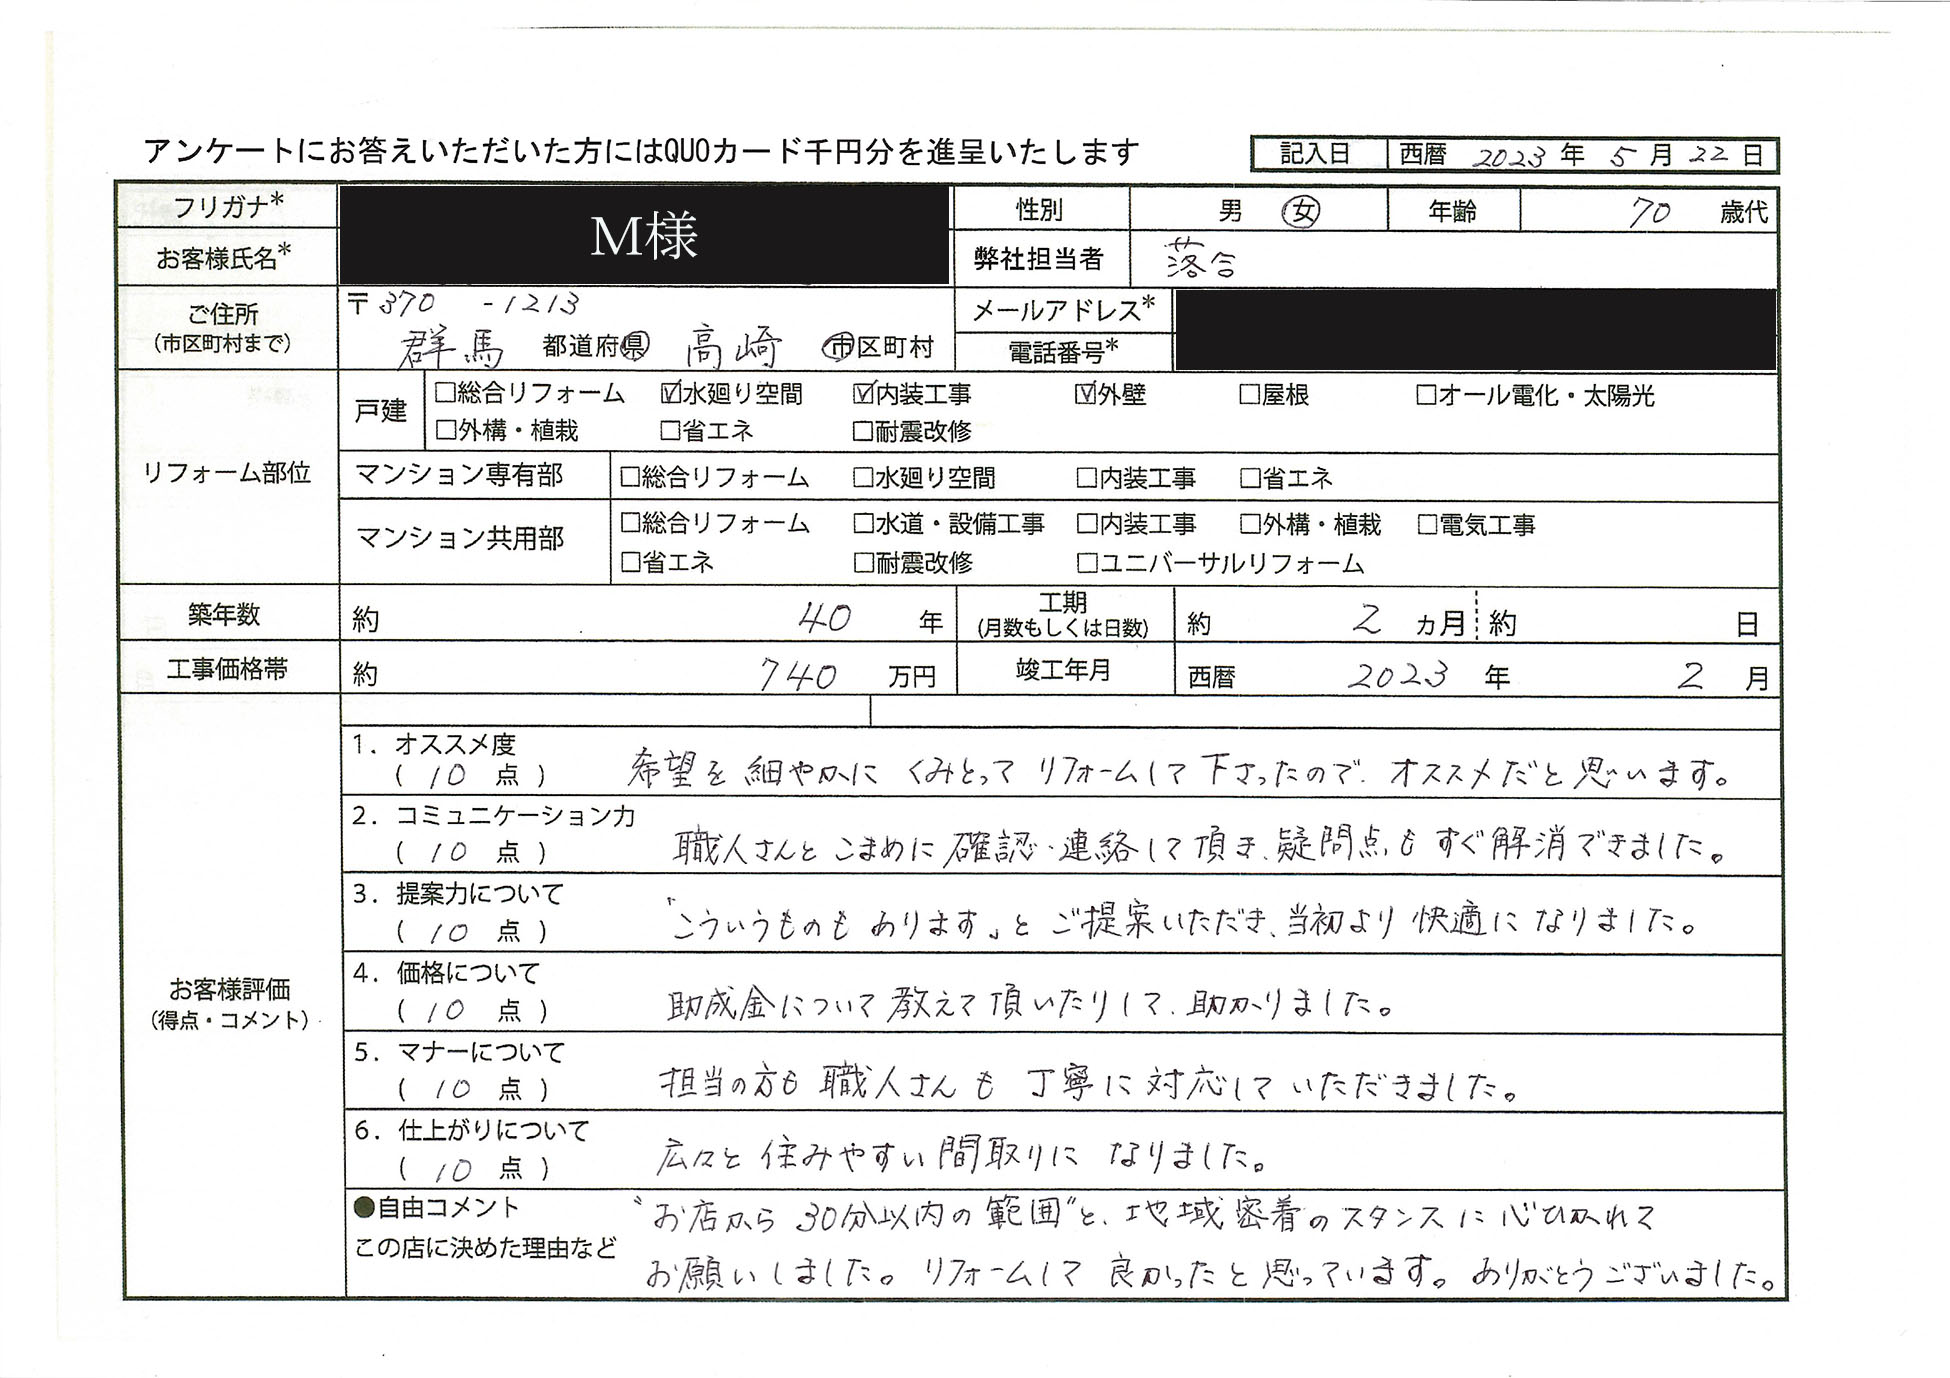 アンケートにお答えいただいた方にはQUOカード千円分を進呈いたします
記入日 西暦 2023 年 5 月 22 日
フリガナ* M様 性別 男 女 年齢 70 歳代
お客様氏名* 弊社担当者 落合
ご住所 (市区町村まで) 〒370 -1213 メールアドレス*
群馬 都道府県 高崎 市区町村 電話番号*
リフォーム部位
戸建 □総合リフォーム ☑水廻り空間 ☑内装工事 ☑外壁 □屋根 □オール電化・太陽光
□外構・植栽 □省エネ □耐震改修
マンション専有部 □総合リフォーム □水廻り空間 □内装工事 □省エネ
マンション共用部 □総合リフォーム □水道・設備工事 □内装工事 □外構・植栽 □電気工事
□省エネ □耐震改修 □ユニバーサルリフォーム
築年数 約 40 年 工期 (月数もしくは日数) 約 2 ヵ月 約 日
工事価格帯 約 740 万円 竣工年月 西暦 2023 年 2 月
お客様評価
(得点・コメント)
1. オススメ度
( 10 点 ) 希望を細やかにくみとってリフォームして下さったので、オススメだと思います。
2. コミュニケーション力
( 10 点 ) 職人さんとこまめに確認・連絡して頂き、疑問点もすぐ解消できました。
3. 提案力について
( 10 点 ) 「こういうものもあります」とご提案いただき、当初より快適になりました。
4. 価格について
( 10 点 ) 助成金について教えて頂いたりして、助かりました。
5. マナーについて
( 10 点 ) 担当の方も職人さんも丁寧に対応していただきました。
6. 仕上がりについて
( 10 点 ) 広々と住みやすい間取りになりました。
●自由コメント
この店に決めた理由など
〝お店から30分以内の範囲〟と、地域密着のスタンスに心ひかれて
お願いしました。リフォームして良かったと思っています。ありがとうございました。